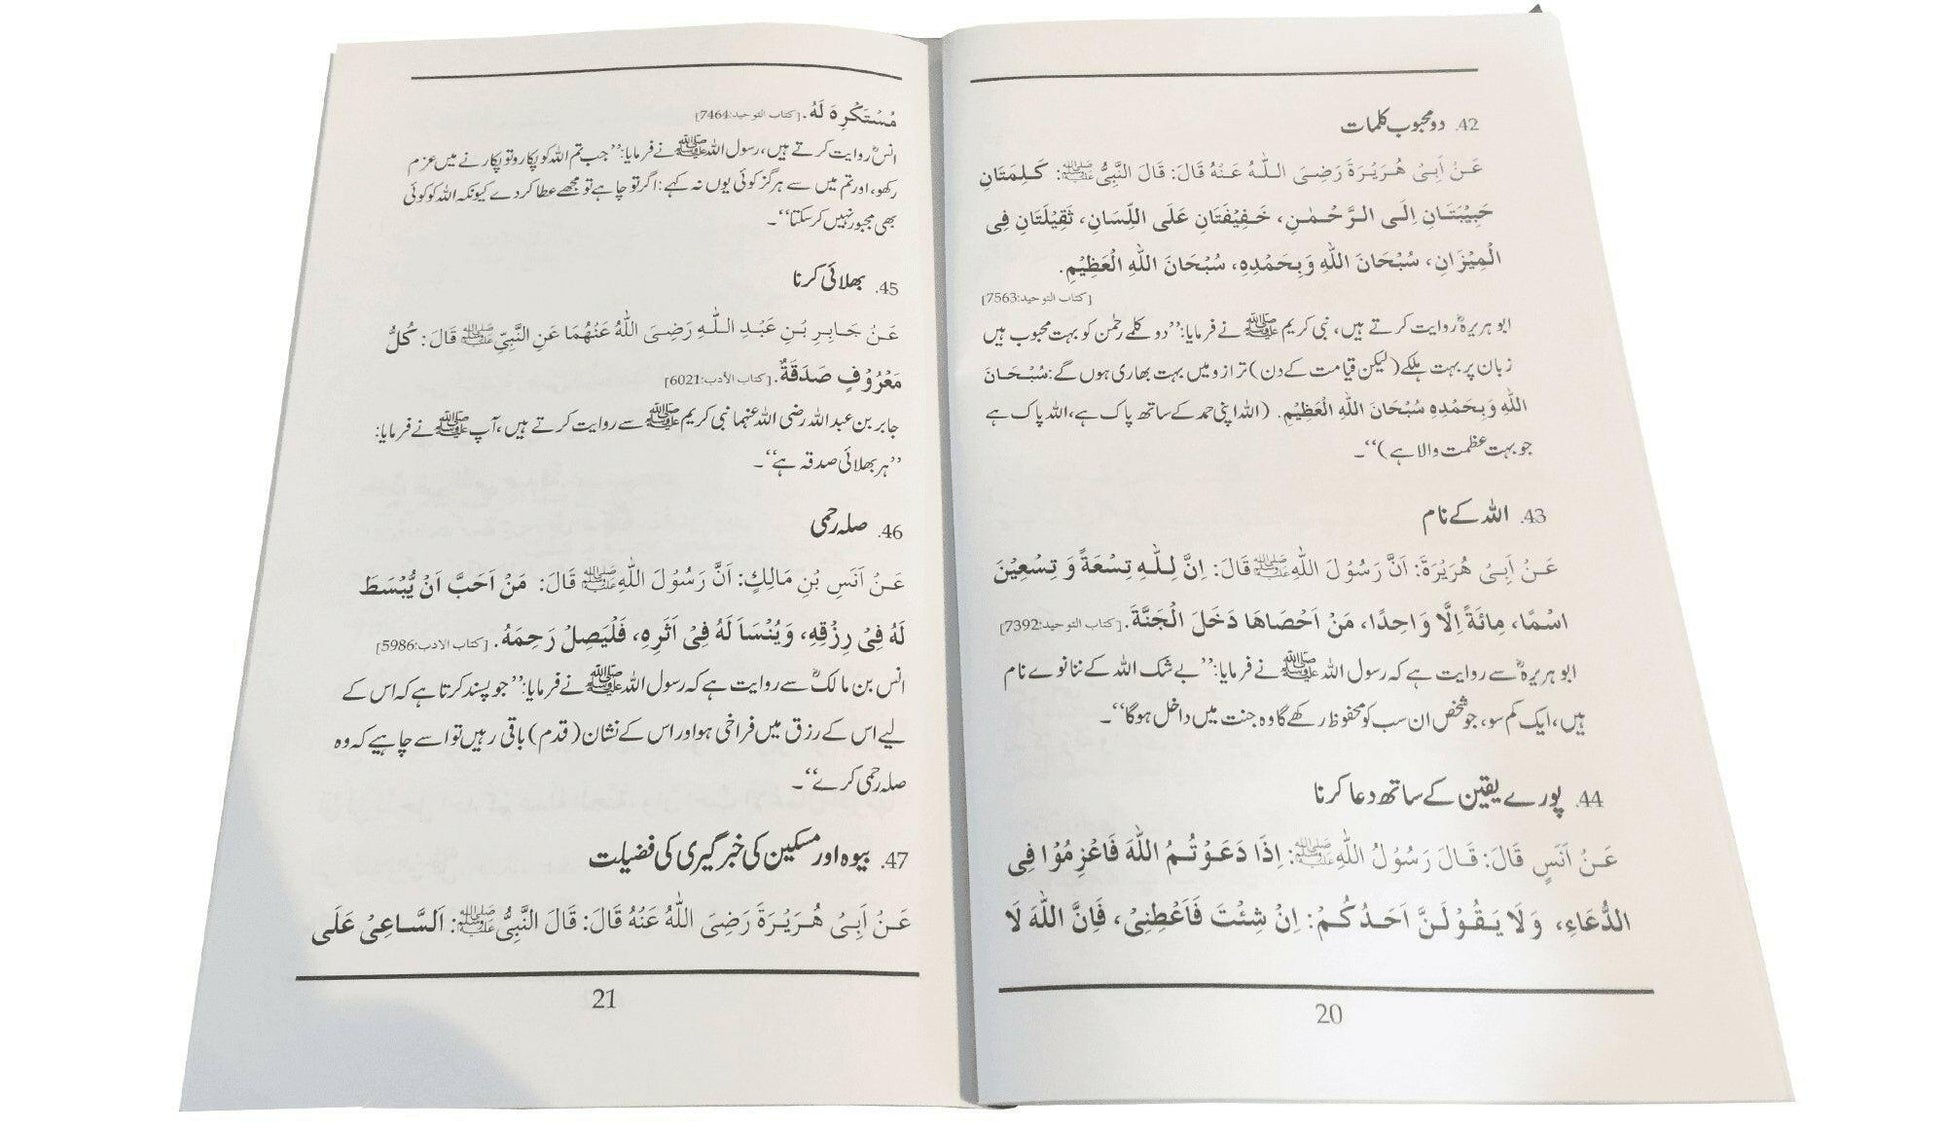 42. دو محبوب کلمات
عَنْ اَبِیْ هُرَیْرَةَ رَضِیَ اللّٰهُ عَنْهُ قَالَ: قَالَ النَّبِیُّ ﷺ: کَلِمَتَانِ
حَبِیْبَتَانِ اِلَی الرَّحْمٰنِ، خَفِیْفَتَانِ عَلَی اللِّسَانِ، ثَقِیْلَتَانِ فِی
الْمِیْزَانِ، سُبْحَانَ اللّٰهِ وَبِحَمْدِهِ، سُبْحَانَ اللّٰهِ الْعَظِیْمِ.
[کتاب التوحید:7563]
ابو ہریرہؓ روایت کرتے ہیں، نبی کریم ﷺ نے فرمایا: ’’دو کلمے رحمٰن کو بہت محبوب ہیں
زبان پر بہت ہلکے (لیکن قیامت کے دن) ترازو میں بہت بھاری ہوں گے: سُبْحَانَ
اللّٰهِ وَبِحَمْدِهِ سُبْحَانَ اللّٰهِ الْعَظِیْمِ. (اللہ اپنی حمد کے ساتھ پاک ہے، اللہ پاک ہے
جو بہت عظمت والا ہے)‘‘۔
43. اللہ کے نام
عَنْ اَبِیْ هُرَیْرَةَ: اَنَّ رَسُوْلَ اللّٰهِ ﷺ قَالَ: اِنَّ لِلّٰهِ تِسْعَةً وَ تِسْعِیْنَ
اسْمًا، مِائَةً اِلَّا وَاحِدًا، مَنْ اَحْصَاهَا دَخَلَ الْجَنَّةَ. [کتاب التوحید:7392]
ابو ہریرہؓ سے روایت ہے کہ رسول اللہ ﷺ نے فرمایا: ’’بے شک اللہ کے ننانوے نام
ہیں، ایک کم سو، جو شخص ان سب کو محفوظ رکھے گا وہ جنت میں داخل ہوگا‘‘۔
44. پورے یقین کے ساتھ دعا کرنا
عَنْ اَنَسٍ قَالَ: قَالَ رَسُوْلُ اللّٰهِ ﷺ: اِذَا دَعَوْتُمُ اللّٰهَ فَاعْزِمُوْا فِی
الدُّعَاءِ، وَلَا یَقُوْلَنَّ اَحَدُکُمْ: اِنْ شِئْتَ فَاَعْطِنِیْ، فَاِنَّ اللّٰهَ لَا
20
مُسْتَکْرِهَ لَهُ. [کتاب التوحید:7464]
انسؓ روایت کرتے ہیں، رسول اللہ ﷺ نے فرمایا: ’’جب تم اللہ کو پکارو تو پکارنے میں عزم
رکھو، اور تم میں سے ہرگز کوئی یوں نہ کہے: اگر تو چاہے تو مجھے عطا کر دے کیونکہ اللہ کو کوئی
بھی مجبور نہیں کر سکتا‘‘۔
45. بھلائی کرنا
عَنْ جَابِرِ بْنِ عَبْدِ اللّٰهِ رَضِیَ اللّٰهُ عَنْهُمَا عَنِ النَّبِیِّ ﷺ قَالَ: کُلُّ
مَعْرُوْفٍ صَدَقَةٌ. [کتاب الأدب:6021]
جابر بن عبداللہ رضی اللہ عنہما نبی کریم ﷺ سے روایت کرتے ہیں، آپ ﷺ نے فرمایا:
’’ہر بھلائی صدقہ ہے‘‘۔
46. صلہ رحمی
عَنْ اَنَسِ بْنِ مَالِكٍ: اَنَّ رَسُوْلَ اللّٰهِ ﷺ قَالَ: مَنْ اَحَبَّ اَنْ یُّبْسَطَ
لَهُ فِیْ رِزْقِهِ، وَیُنْسَاَ لَهُ فِیْ اَثَرِهِ، فَلْیَصِلْ رَحِمَهُ. [کتاب الادب:5986]
انس بن مالکؓ سے روایت ہے کہ رسول اللہ ﷺ نے فرمایا: ’’جو پسند کرتا ہے کہ اس کے
لیے اس کے رزق میں فراخی ہو اور اس کے نشان (قدم) باقی رہیں تو اسے چاہیے کہ وہ
صلہ رحمی کرے‘‘۔
47. بیوہ اور مسکین کی خبر گیری کی فضیلت
عَنْ اَبِیْ هُرَیْرَةَ رَضِیَ اللّٰهُ عَنْهُ قَالَ: قَالَ النَّبِیُّ ﷺ: اَلسَّاعِیْ عَلَی
21